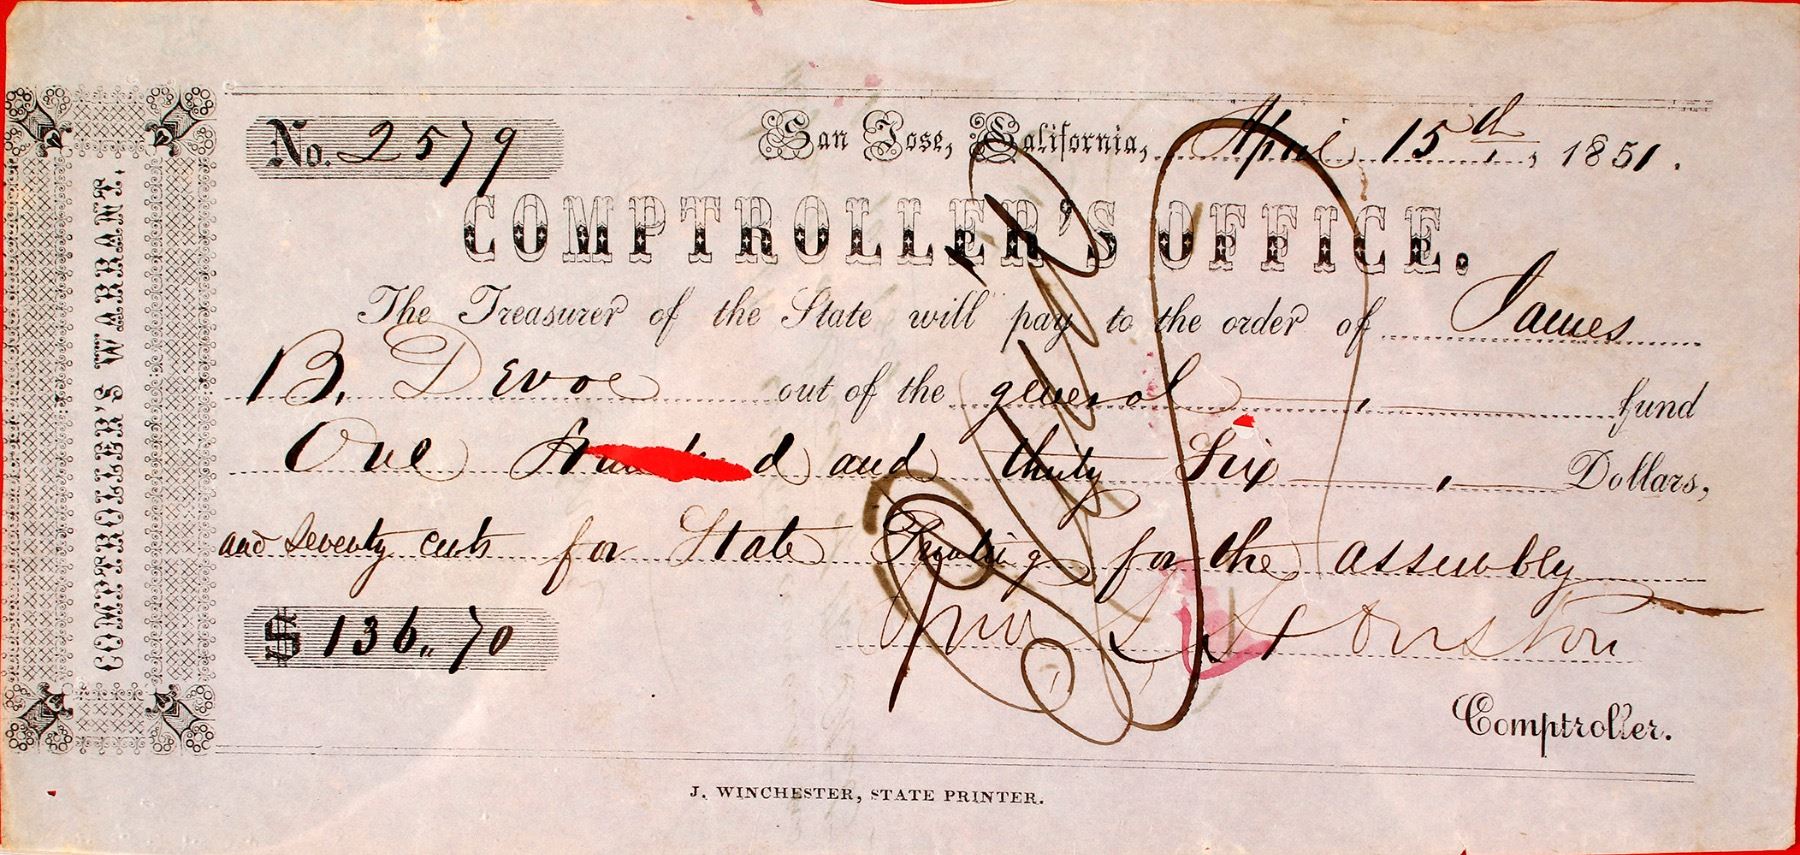 COMPTROLLER'S WARRANT.
No. 2579
San Jose, California, April 15th, 1851.
COMPTROLLER'S OFFICE.
The Treasurer of the State will pay to the order of James
B. Devoe out of the general fund
One Hundred and thirty Six Dollars,
and Seventy cents for State Printing for the assembly
$ 136.. 70
Jno S Houston
Comptroller.
J. WINCHESTER, STATE PRINTER.